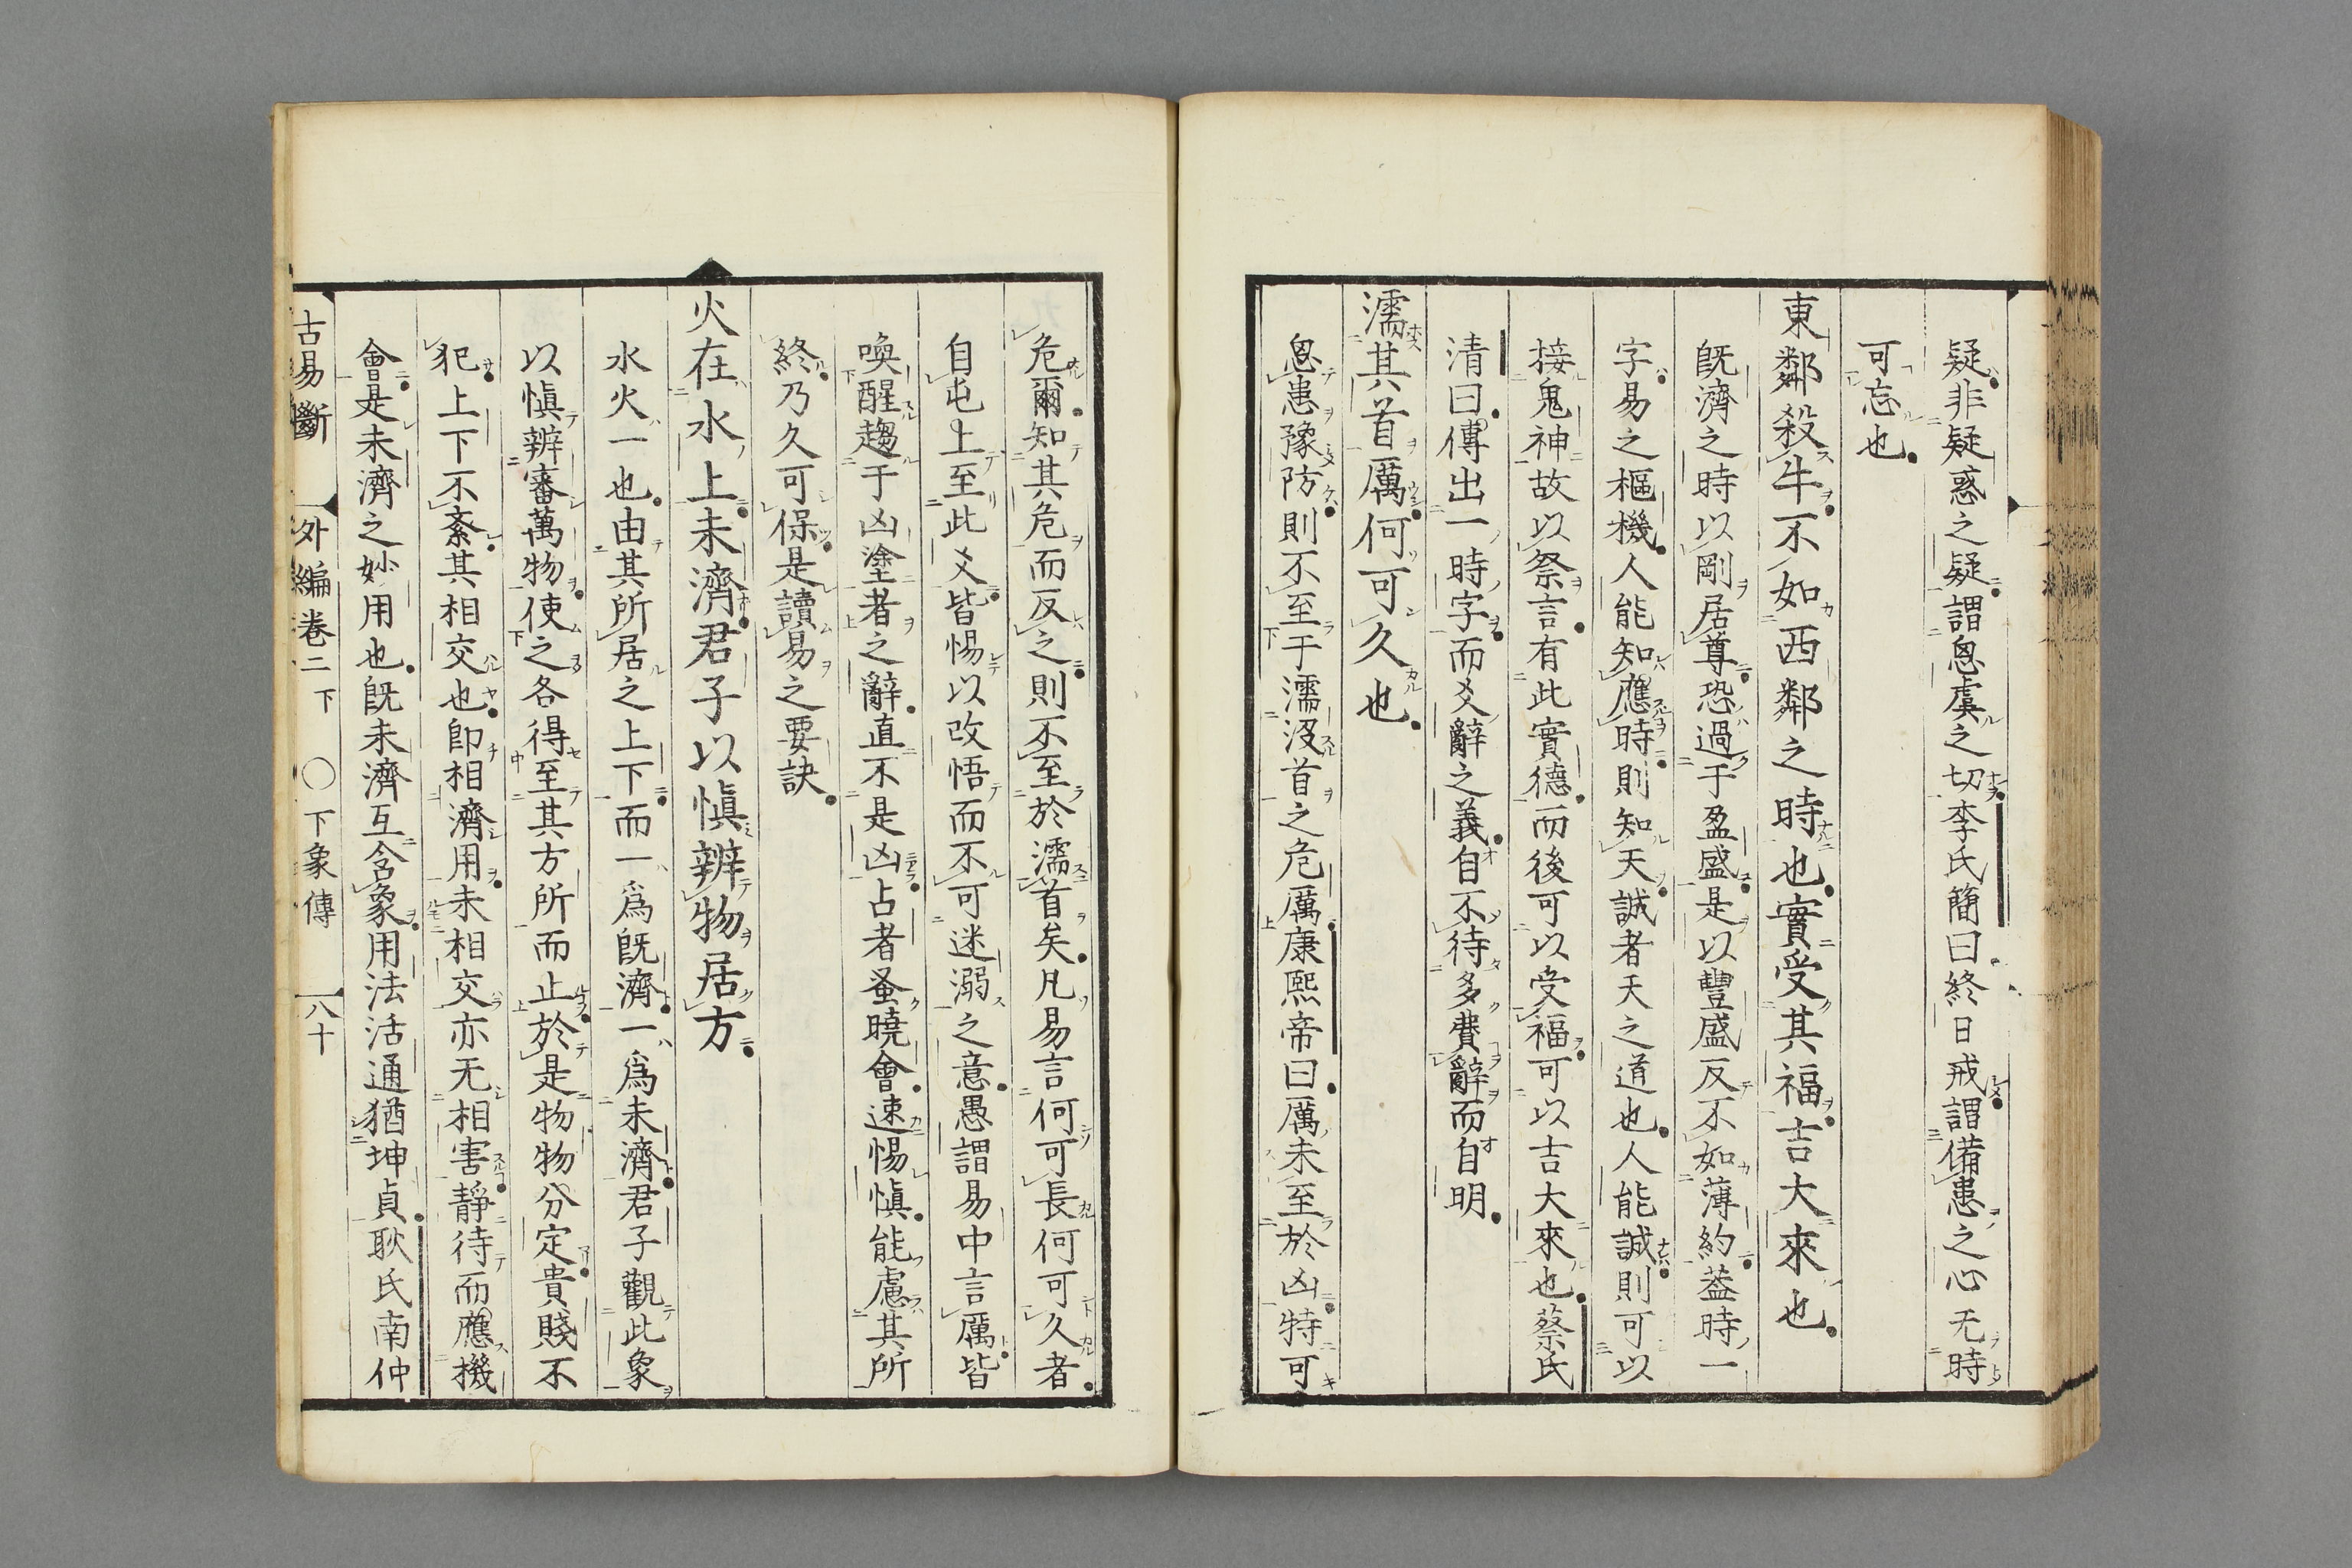 疑非疑惑之疑謂思虞之切李氏簡曰終日戒謂備患之心无時
可忘也
東鄰殺牛不如西鄰之時也實受其福吉大來也
既濟之時以剛居尊恐過于盈盛是以豐盛反不如薄約葢時一
字易之樞機人能知應時則知天誠者天之道也人能誠則可以
接鬼神故以祭言有此實德而後可以受福可以吉大來也蔡氏
清曰傳出一時字而爻辭之義自不待多費辭而自明
濡其首厲何可久也
思患豫防則不至于濡沒首之危厲康熙帝曰厲未至於凶特可
危爾知其危而反之則不至於濡首矣凡易言何可長何可久者
自屯上至此爻皆惕以改悟而不可迷溺之意愚謂易中言厲皆
喚醒趨于凶塗者之辭直不是凶占者蚤曉會速惕愼能慮其所
終乃久可保是讀易之要訣
火在水上未濟君子以愼辨物居方
水火一也由其所居之上下而一爲既濟一爲未濟君子觀此象
以愼辨審萬物使之各得至其方所而止於是物物分定貴賤不
犯上下不紊其相交也卽相濟用未相交亦无相害靜待而應機
會是未濟之妙用也既未濟互含象用法活通猶坤貞耿氏南仲
古易斷 外編卷二下 ○下象傳 八十